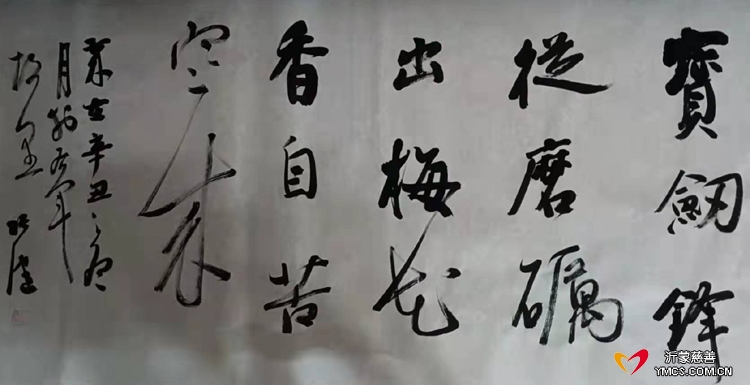 寶劒鋒
從磨礪
出梅花
香自苦
寒來
辛丑之夏
月
沂蒙慈善
YMCS.COM.CN